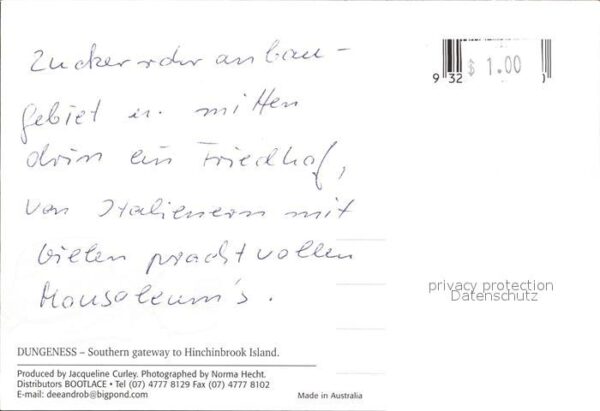 Zuckerrohr anbau-
gebiet u. mitten
drin ein Friedhof,
von Italienern mit
vielen prachtvollen
Mausoleum's.
9 32
$ 1.00
privacy protection
Datenschutz
DUNGENESS – Southern gateway to Hinchinbrook Island.
Produced by Jacqueline Curley. Photographed by Norma Hecht.
Distributors BOOTLACE • Tel (07) 4777 8129 Fax (07) 4777 8102
E-mail: deeandrob@bigpond.com
Made in Australia